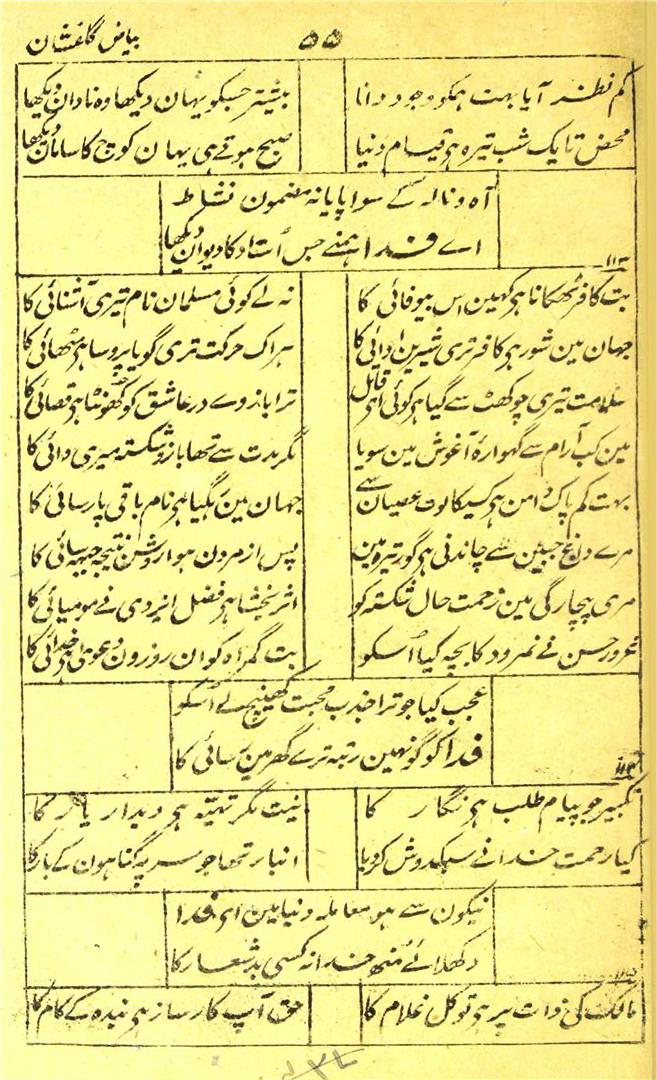 بیاض گلفشان
۵۵
کم نظر آیا بہت ہمکو وجود دانا بیشتر جسکو یہان دیکھا وہ نادان دیکھا
محض تا یک شب تیرہ ہے قیام دنیا صبح ہوتے ہی یہان کوچ کا سامان دیکھا
آہ و نالہ کے سوا پایا نہ مضمون نشاط
اے فدا ہمنے جس اُستاد کا دیوان دیکھا
۱۱۳
بت کافر ٹھکانا ہے کہین اس بیوفائی کا نہ لے کوئی مسلمان نام تیری آشنائی کا
جہان مین شور ہے کافر تری شیرین ادائی کا ہر اک حرکت تری گویا پروسا ہے مٹھائی کا
سلامت تیری چوکھٹ سے گیا ہے کوئی اے قاتل ترا بازوے در عاشق کو کھونٹا ہے قصائی کا
مین کب آرام سے گہوارۂ آغوش مین سویا مگر مدت سے تھا بازو شکستہ میری دائی کا
بہت کم پاک دامن ہے کسیکا لوث عصیان سے جہان مین رہگیا ہے نام باقی پارسائی کا
مرے داغ جبین سے چاندنی ہے گور تیرہ مین پس از مردن ہوا روشن نتیجہ جبہہ سائی کا
مری بیچارگی مین زحمت حال شکستہ کو اثر بخشا ہے فضل ایزدی نے مومیائی کا
غرور حسن نے نمرود کا بچہ کیا اُسکو بت گمراہ کو ان روزون دعوی ہے خدائی کا
عجب کیا جو ترا جذب محبت کھینچ لے اُسکو
فدا کو گو نہین رتبہ ترے گھر مین رسائی کا
۱۱۴
تکبیر جو پیام طلب ہے نگار کا نیت مگر تہیّہ ہے دیدار یار کا
کیا رحمت خدا نے سبکدوش کر دیا انبار تھا جو سر پہ گناہون کے بار کا
نیکون سے ہو معاملہ دنیا مین اے فدا
دکھلائے مُنھ خدا نہ کسی بد شعار کا
۱۱۵
مالک کی ذات پر ہے توکل غلام کا حق آپ کارساز ہے بندہ کے کام کا